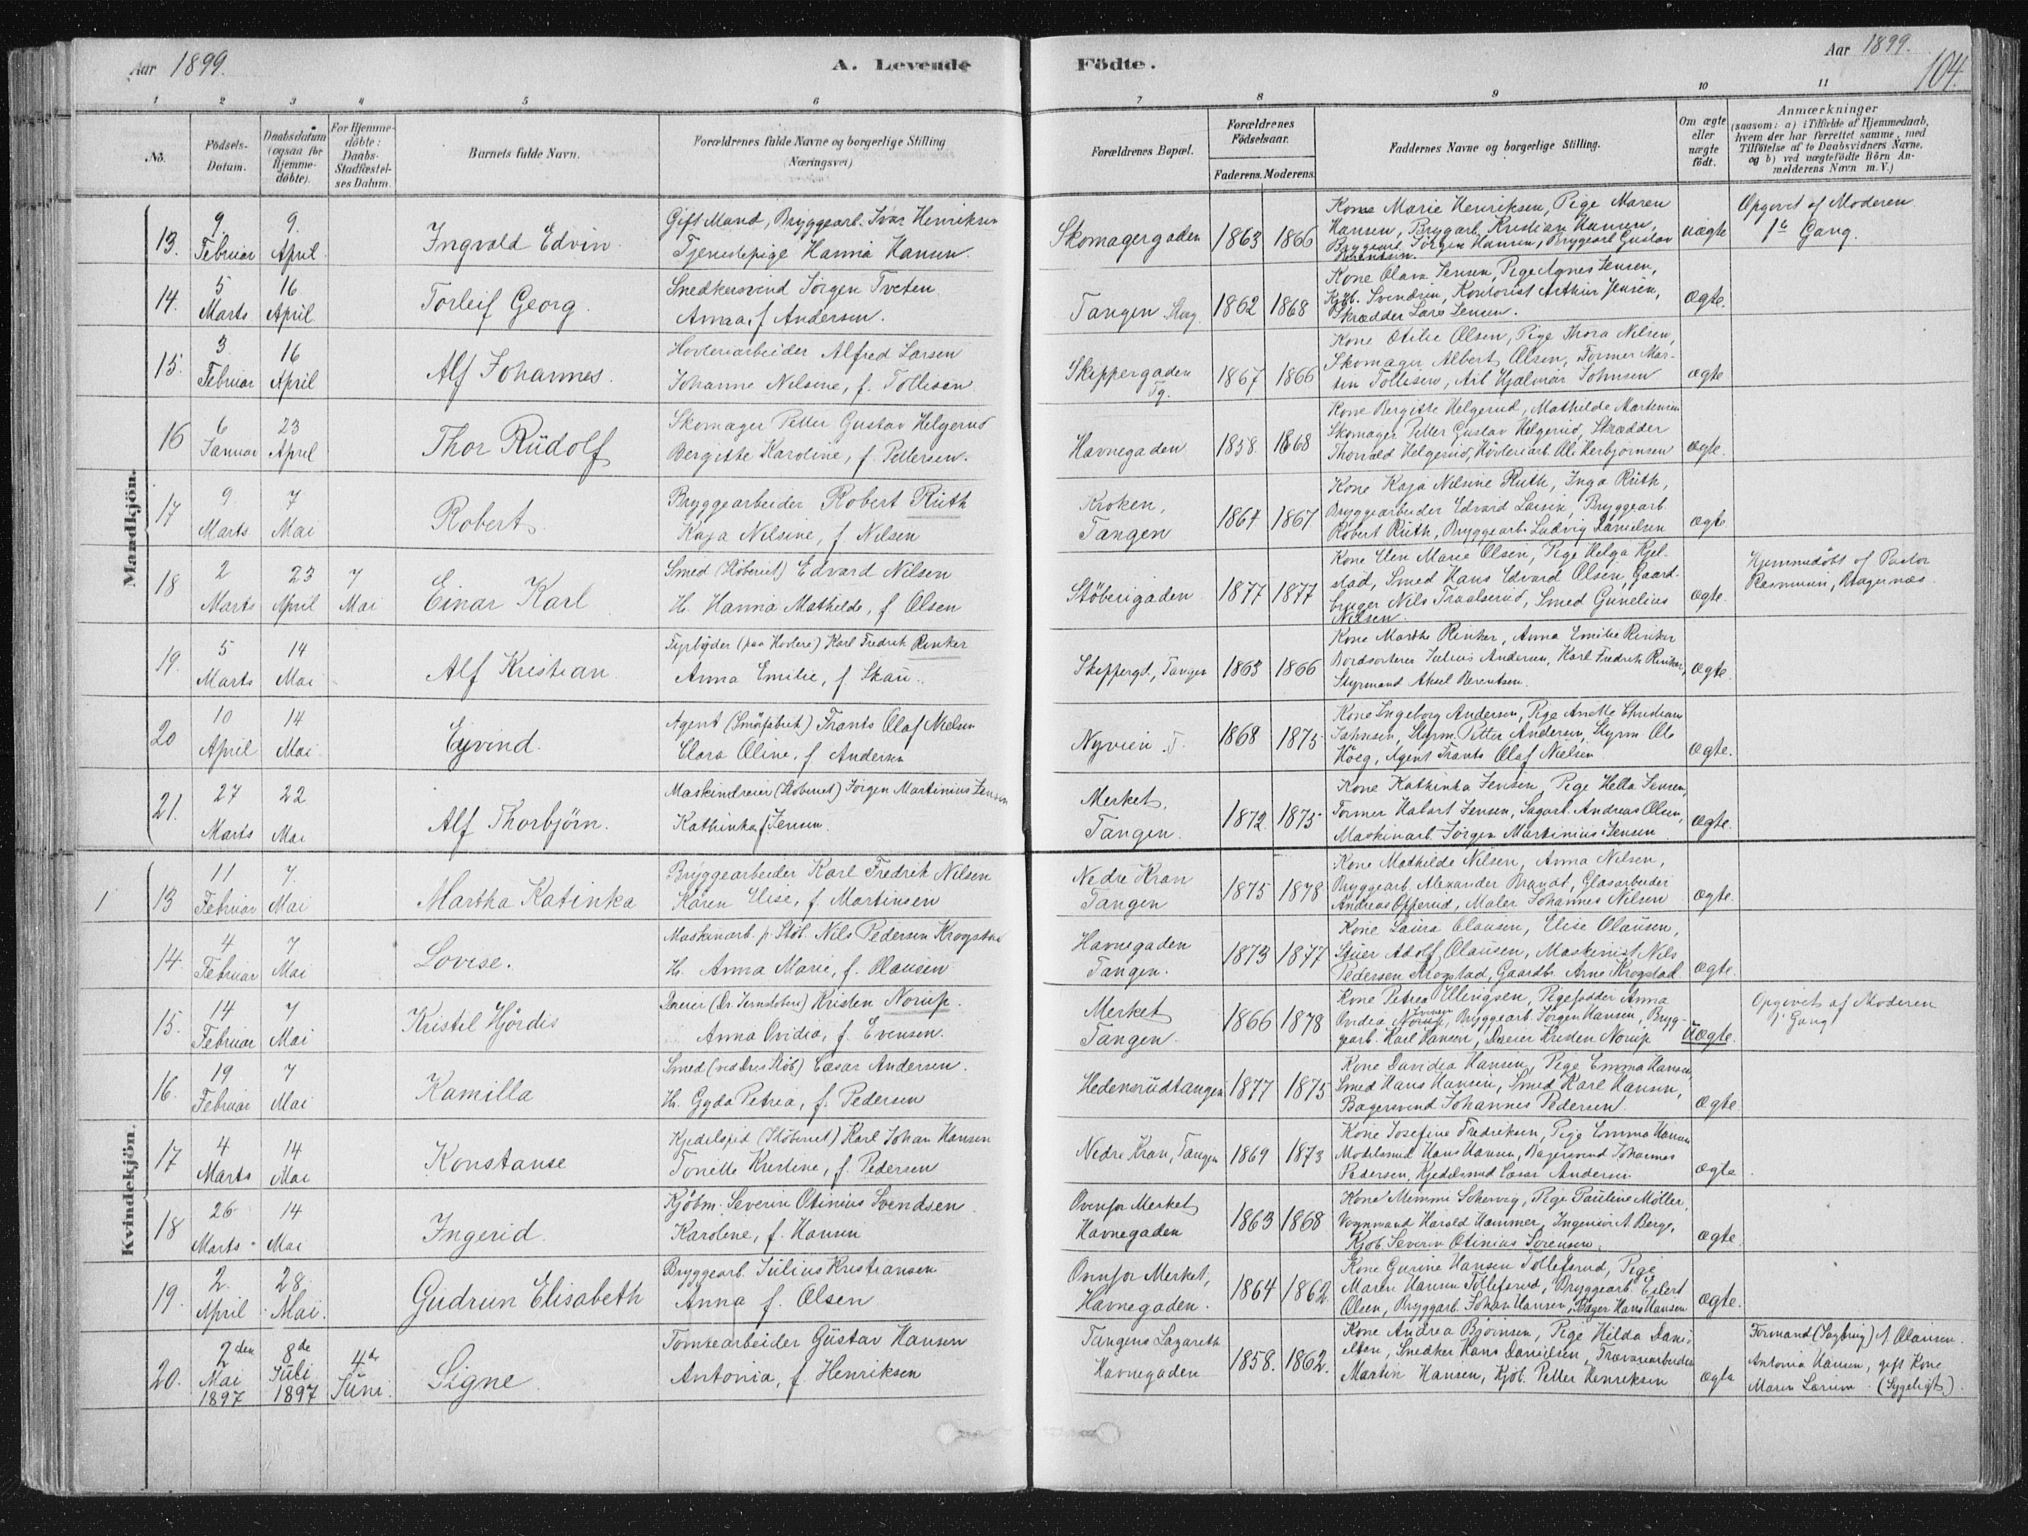 Aar 1899.
A. Levende
Födte.
Aar 1899.
104.
1 2 3 4 5 6 7 8 9 10 11
No.
Födsels-
Datum.
Daabsdatum
(ogsaa for
Hjemme-
döbte).
For Hjemme-
döbte:
Daabs-
Stadfæstel-
ses Datum.
Barnets fulde Navn.
Forældrenes fulde Navne og borgerlige Stilling
(Næringsvei)
Forældrenes Bopæl.
Forældrenes
Födselsaar.
Faderens. Moderens.
Faddernes Navne og borgerlige Stilling.
Om ægte
eller
uægte
født.
Anmærkninger
(saasom: a) i Tilfælde af Hjemmedaab,
hvem der har forrettet samme, med
Tilföielse af to Daabsvidners Navne,
og b) ved uægtefödte Börn An-
melderens Navn m. V.)
Mandkjön.
13. 9. Februar 9. April. Ingvald Edvin.
Gift Mand, Bryggearb. Ivar Henriksen
Tjenestepige Hanna Hansen.
Skomagergaden 1863 1866
Kone Marie Henriksen, Pige Maren
Hansen, Brygarb. Kristian Hansen,
Bryggearb. Jörgen Hansen, Bryggearb Gustav
uægte
Opgivet af Moderen
1ste Gang.
14. 5 Marts 16 April Torleif Georg.
Snedkersvend Jörgen Tveten
Anna, f Andersen.
Tangen 1862 1868
Kone Olava Jensen, Pige Agnes Jensen,
Kjöb. Svendsen, Kontorist Arthur Jensen,
Skrædder Lars Jensen.
ægte.
15. 3 Februar 16 April Alf Johannes.
Hövleriarbeider Alfred Larsen
Johanne Nilsine, f. Tollisen
Skippergaden
Tg.
1867 1866
Kone Otilie Olsen, Pige Thora Nilsen,
Skomager Albert Olsen, Former Mar-
tin Tollisen, Arb Hjalmar Johnsen
ægte
16 6 Januar 23 April Thor Rudolf
Skomager Petter Gustav Helgerud
Bergitte Karoline, f. Pettersen.
Havnegaden 1858. 1868
Kone Bergitte Helgerud, Mathilde Martensen
Skomager Petter Gustav Helgerud, Skrædder
Thorvald Helgerud, Hövleriarb. Ole Herbjörnsen
ægte.
17 9 Marts 7 Mai Robert.
Bryggearbeider Robert Ruth
Kaja Nilsine, f. Nilsen
Kroken,
Tangen
1867 1867
Kone Kaja Nilsine Ruth, Inga Ruth,
Bryggearbeider Edvard Larsen, Bryggearb.
Robert Ruth, Bryggearb. Ludvig Danielsen
ægte
18 2 Marts 23 April 7 Mai Einar Karl
Smed (Støberiet) Edvard Nilsen
H. Hanna Mathilde, f Olsen
Støberigaden 1877 1877
Kone Elen Marie Olsen, Pige Helga Kjel-
stad, Smed Hans Edvard Olsen, Gaard-
bruger Nils Traalserud, Smed Gunelius
Nilsen
ægte.
Hjemmedöbt af Pastor
Rasmussen, Bragernæs.
19. 5 Marts 14 Mai Alf Kristian.
Fyrböder (paa Hövlere) Karl Fredrik Rinker
Anna Emilie, f Skau.
Skippergd., Tangen 1863 1866
Kone Marthe Rinker, Anna Emilie Rinker
Bordsorterer Julius Andersen, Karl Fredrik Rinker,
Styrmand Aksel Berentsen.
ægte.
20 10 April 14 Mai. Eyvind.
Agent (Smörfabrik) Frants Olaf Nielsen
Clara Oline, f Andersen
Nyveien. T. 1868 1875
Kone Ingeborg Andersen, Pige Anette Christiane
Johnsen, Styrm. Petter Andersen, Styrm Ole
Höeg, Agent Frants Olaf Nielsen
ægte.
21. 27 Marts 22 Mai Alf Thorbjörn.
Maskindreier (Støberiet) Jörgen Martinius Jensen
Kathinka f Jensen.
Merket,
Tangen.
1872. 1875
Kone Kathinka Jensen, Pige Hella Jensen,
Former Habart Jensen, Sagarb. Andreas Olsen,
Maskinarb. Jörgen Martinius Jensen
ægte.
Kvindekjön.
1 13 11 Februar 7. Mai Martha Katinka
Bryggearbeider Karl Fredrik Nilsen
Karen Elise, f. Martinsen
Nedre Kran
Tangen
1875 1878
Kone Mathilde Nilsen, Anna Nilsen,
Bryggearb. Alexander Brandt, Glasarbeider
Andreas Opperud, Maler Johannes Nilsen
ægte.
14. 4 Februar 7 Mai Lovise.
Maskinarb. p. Støb. Nils Pedersen Krogstad
H. Anna Marie, f. Olausen
Havnegaden
Tangen.
1873 1877
Kone Laura Olausen, Elise Olausen,
Stuer Adolf Olausen, Maskinist Nils
Pedersen Krogstad, Gaardbr. Arne Krogstad
ægte.
15. 14 Februar 7 Mai Kristel Hjördis
Dreier (Dr Jernstøberi) Kristen Norup.
Anna Ovidia, f. Evensen.
Merket
Tangen.
1866 1878
Kone Petrea Ellingsen, Pigefadder Anna
Ovidea Norup, Bryggearb. Jörgen Hansen, Bryg-
gearb. Karl Hansen, Dreier Kristen Norup
Uægte.
Opgivet af Moderen
1 Gang
16. 19 Februar 7 Mai Kamilla
Smed (ved Dres Støb) Cæsar Andersen.
H. Gyda Petrea, f. Pedersen
Hedensrudtangen 1877 1875
Kone Davidia Hansen, Pige Emma Hansen,
Smed Hans Hansen, Smed Karl Hansen,
Bagersvend Johannes Pedersen.
ægte
17 4 Marts 14 Mai Konstanse
Kjedelsmed (Støberiet) Karl Johan Hansen
Tonette Kristine, f. Pedersen
Nedre Kran, Tangen 1869 1873
Kone Josefine Fredriksen, Pige Emma Hansen
Modelsmed Hans Hansen, Bagersvend Johannes
Pedersen, Kjedelsmed Cæsar Andersen.
ægte
18 26 Marts. 14 Mai Ingerid.
Kjöbm. Severin Otinius Svendsen
Karoline, f. Hansen
Ovenfor Merket
Havnegaden
1863 1868
Kone Mimmi Scherwig, Pige Pauline Møller,
Vognmand Harald Hammer, Ingeniör A Berge,
Kjöb. Severin Otinius Sörensen.
ægte.
19. 2. April 28 Mai. Gudrun Elisabeth
Bryggearb. Julius Kristiansen
Anna f. Olsen
Ovenfor Merket,
Havnegaden.
1864 1862.
Kone Gurine Hansen Tollefsrud, Pige
Maren Hansen Tollefsrud, Bryggearb. Eilert
Olsen, Bryggarb. Johan Hansen, Bager Hans Hansen
ægte.
20. 2den Mai 1897 8de Juli 1897 4de Juni. Signe
Tomtearbeider Gustav Hansen
Antonia, f. Henriksen
Tangens Lazareth
Havnegaden
1858. 1862.
Kone Andrea Björnsen, Pige Hilda Dani-
elsen, Snedker Hans Danielsen, Trævarearbeider
Martin Hansen, Kjöb. Petter Henriksen
ægte
Formand (Sagbrug) A Olausen.
Antonia Hansen, gift Kone
Maren Larsen. (Sygeligt).